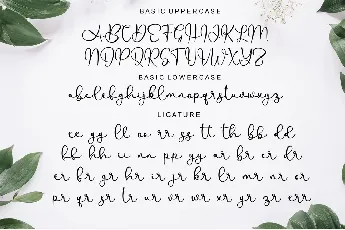 BASIC UPPERCASE
ABCDEFGHIJKLM
NOPQRSTUVWXYZ
BASIC LOWERCASE
abcdefghijklmnopqrstuvwxyz
LIGATURE
ee gg ll oo rr ss tt th bb dd
kk hh ii nn pp yy ar br cr dr
er fr gr hr ir jr kr lr mr nr or
pr qr sr tr ur vr wr xr yr zr err